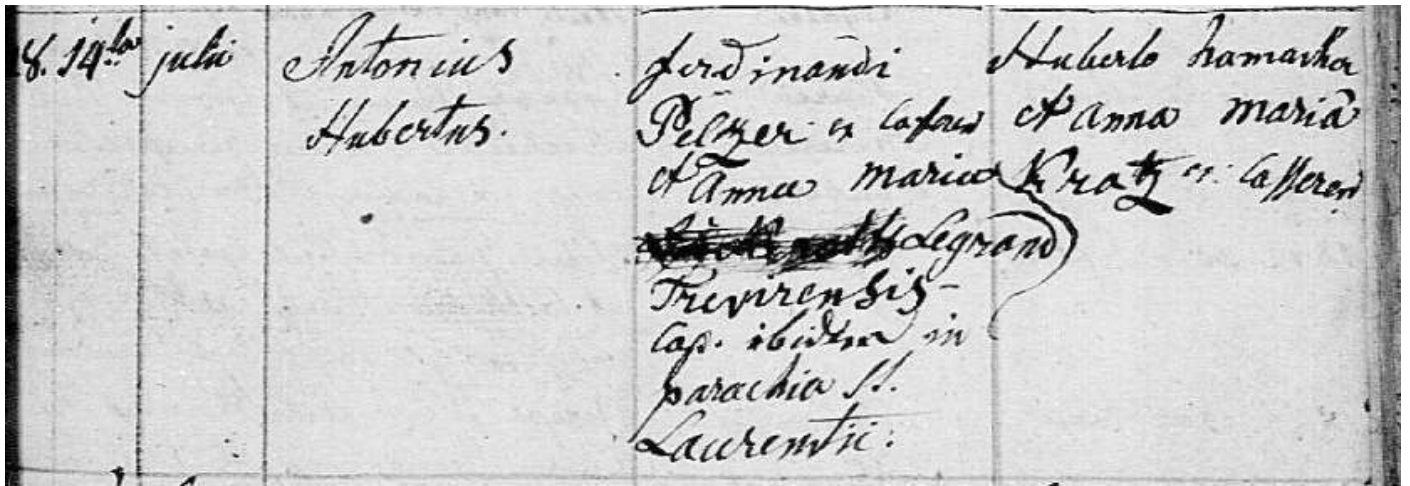 18. 14ta julii
Antonius
Hubertus.
ferdinandi
Pelzer ex
et Anna maria
Legrand
Trevirensis –
cop. ibidem in
parochia St.
Laurentii.
Huberto
et anna mariã
Kratz ex